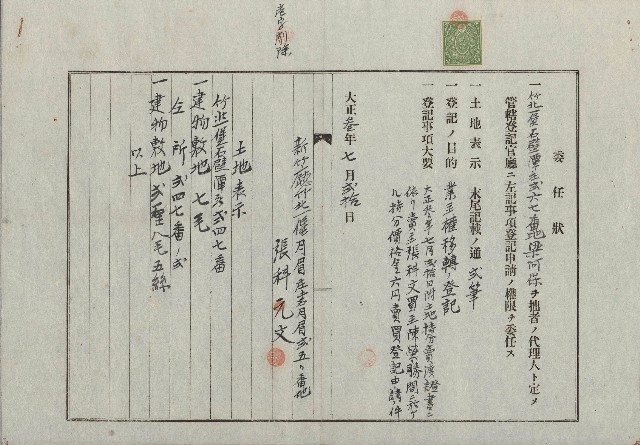 壱字削除
委任狀
一竹北一堡石壁潭庄弐六七番地梁阿保ヲ拙者ノ代理人ト定メ
管轄登記官廳ニ左記事項登記申請ノ權限ヲ委任ス
一土地表示 末尾記載ノ通弐筆
一登記ノ目的 業主權移轉ノ登記
一登記事項大要 大正参年七月弐拾日附土地持分賣渡證書ニ
依リ賣主張科文買主陳榮勝間ニ於ケ
ル持分價格金六円賣買登記申請ノ件
大正参年七月弐拾日
新竹廳竹北一堡月眉庄土名月眉弐五番地
張科元文
土地表示
竹北一堡石壁潭庄弐四七番
一建物敷地 七毛
仝所弐四七番ノ弐
一建物敷地 弐厘八毛五絲
以上